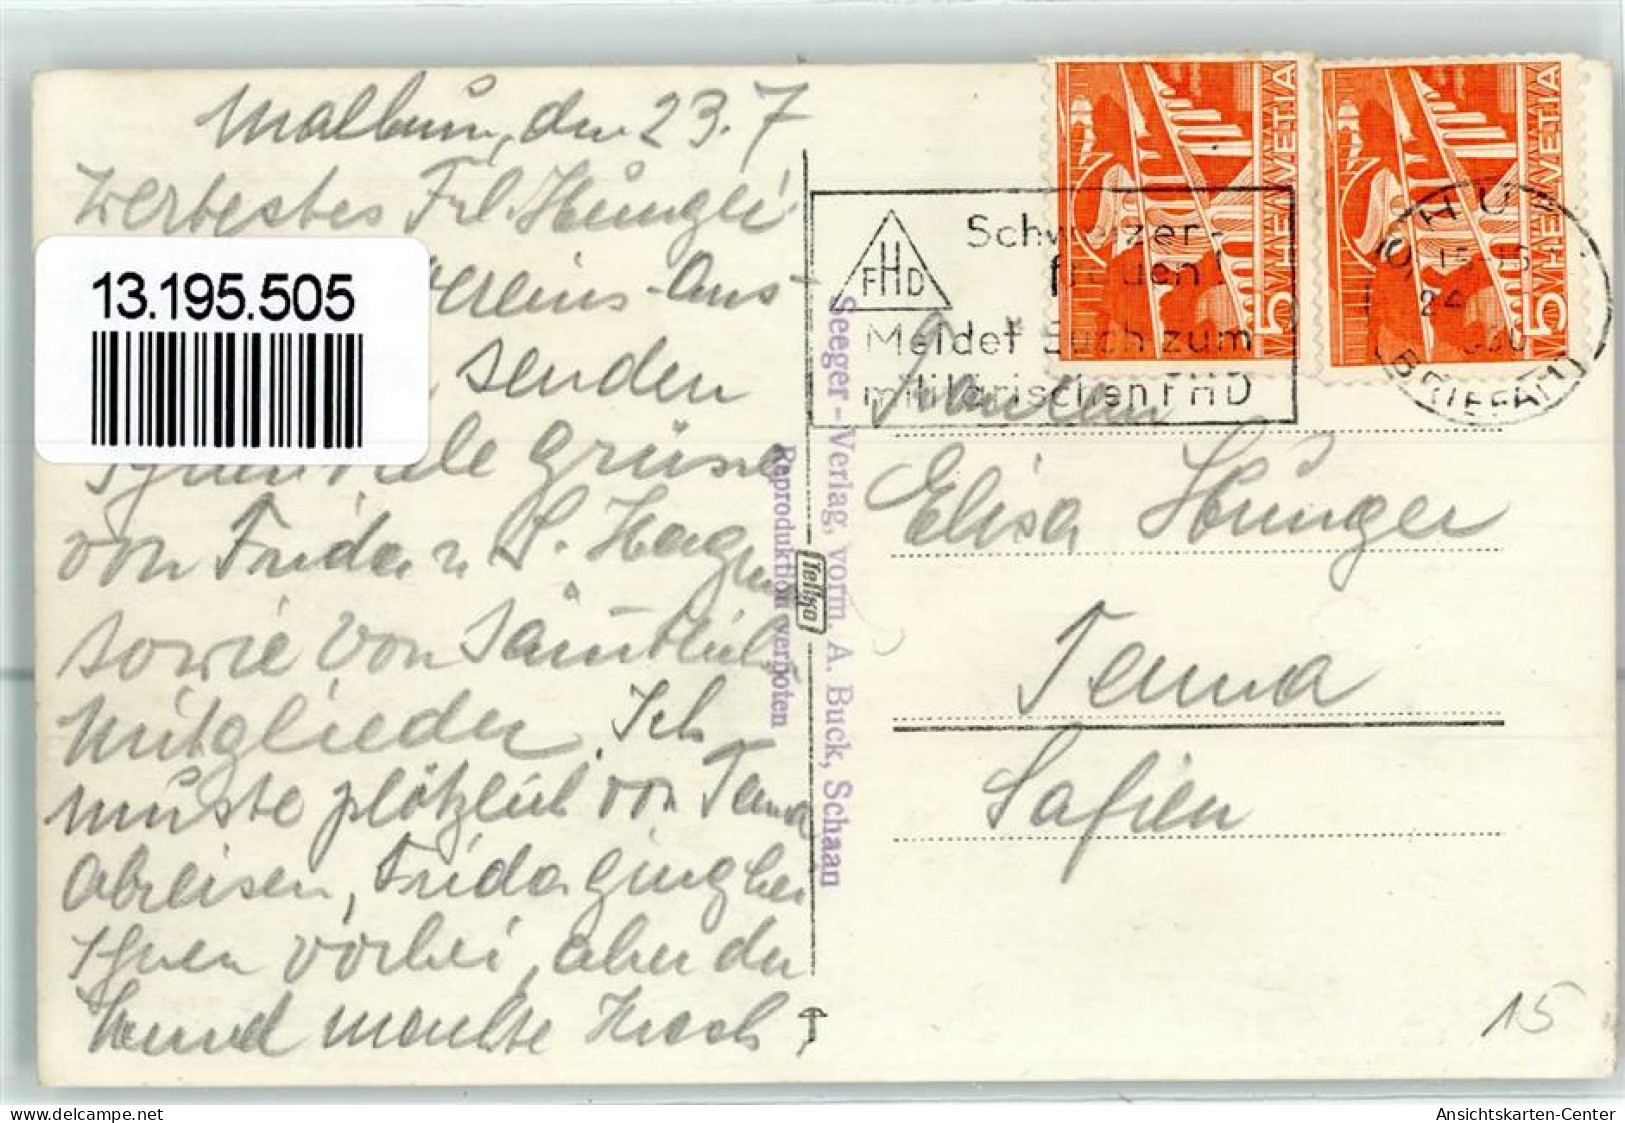 Malbun, den 23. 7
Wertestes Frl. Hungi
13.195.505
ereins-Aus-
senden
Ihnen viele Grüsse
von Frida u S. Hagm
sowie von sämtlich
Mitglieder. Ich
musste plötzlich von Tenna
abreisen, Frida ging bei
Ihnen vorbei, aber der
Hund machte Krach,
Seeger-Verlag, vorm. A. Buck, Schaan
Reproduktion verboten
Tellko
HELVETIA 5
HELVETIA 5
FHD
Schweizer-
frauen!
Meldet Euch zum
militärischen FHD
CHUR
24
BRIEFAN
Fräulein
Elisa Hunger
Tenna
Safien
15
www.delcampe.net
Ansichtskarten-Center